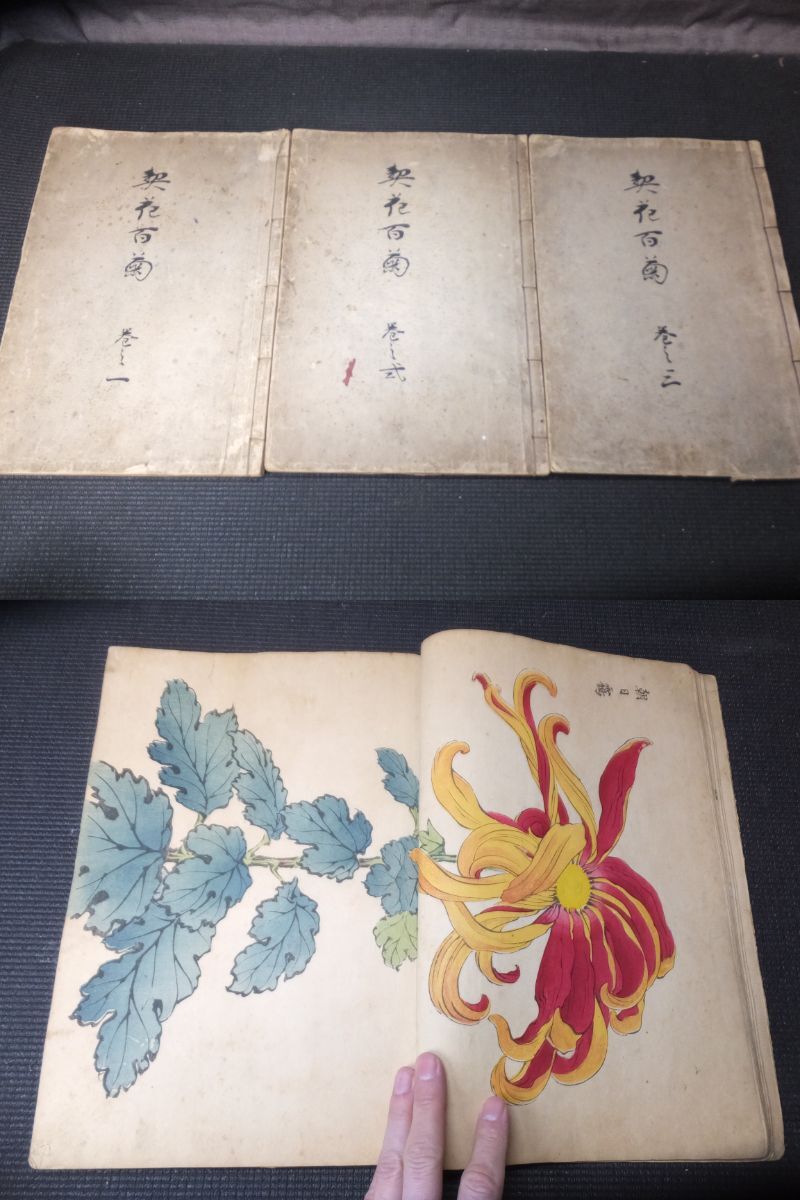 契花百菊
巻之一
契花百菊
巻之弐
契花百菊
巻之三
朝日鶴